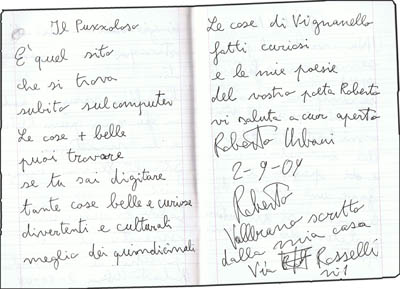 Il Puzzoloso
E' quel sito
che si trova
subito sul computer
Le cose + belle
puoi trovare
se tu sai digitare
tante cose belle e curiose
divertenti e culturali
meglio dei quindicinali
Le cose di Vignanello
fatti curiosi
e le mie poesie
del vostro poeta Roberto
vi saluta a cuor aperto
Roberto Urbani
2-9-04
Roberto
Vallerano scritto
dalla mia casa
Via Rosselli